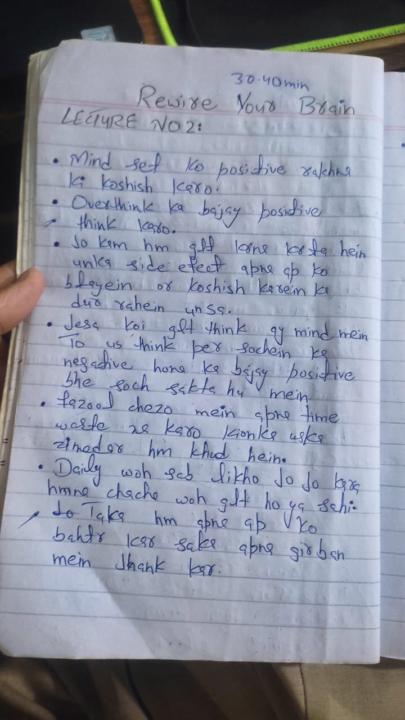 30-40min
Rewire Your Brain
LECTURE NO2:
• Mind set ko positive rakhne
ki koshish karo.
• Overthink ka bajay positive
think karo.
• Jo kam hm glt karne karte hein
unke side efect apne ap ko
bteyein or koshish karein ke
dur rahein unse.
• Jesa koi glt think ay mind mein
To us think per sochein ke
negative hone ke bajay positive
bhe soch sakte hu mein
• fazool chezo mein apne time
waste ne karo kionke uske
zimedar hm khud hein.
• Daily woh seb likho Jo Jo kara
hmne chache woh glt ho ya sahi.
Jo Take hm apne ap ko
bahtr kar sake apne girban
mein Jhank kar.